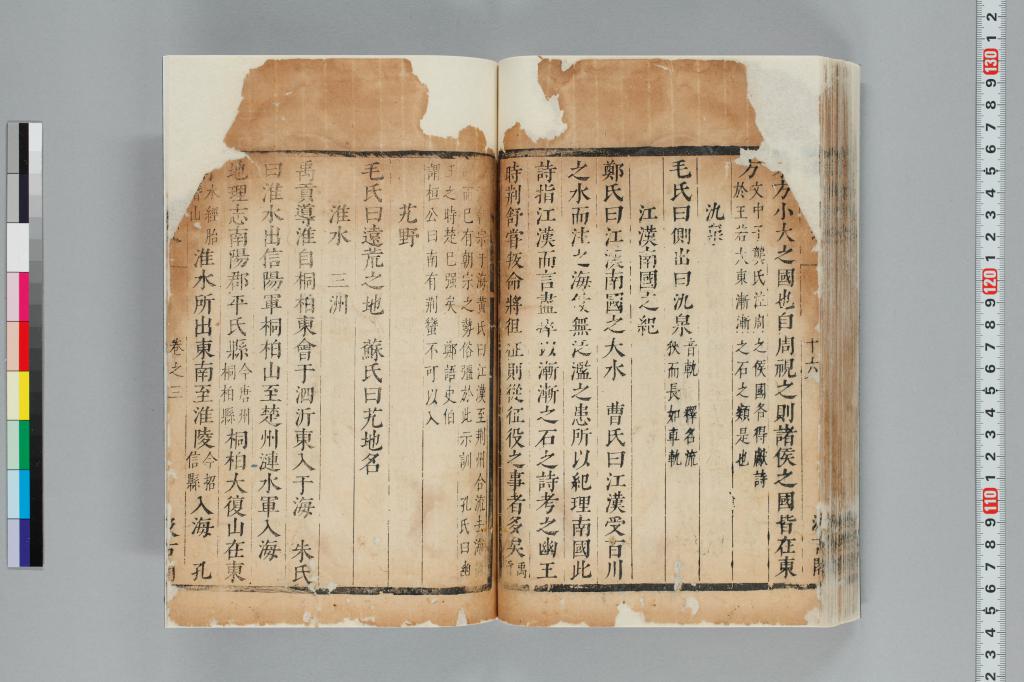 方小大之國也自周視之則諸侯之國皆在東
方 文中子龔氏注周之侯國各得獻詩
於王若大東漸漸之石之類是也
氿泉
毛氏曰側出曰氿泉 音軌 釋名流
狹而長如車軌
江漢南國之紀
鄭氏曰江漢南國之大水 曹氏曰江漢受百川
之水而注之海使無泛濫之患所以紀理南國此
詩指江漢而言盡瘁以漸漸之石之詩考之幽王
時荆舒嘗叛命將徂征則從征役之事者多矣 禹
宗于海黄氏曰江漢至荆州合流去海
而巳有朝宗之勢俗張於此示訓 孔氏曰幽
王之時楚巳强矣 鄭語史伯
謂桓公曰南有荆蠻不可以入
艽野
毛氏曰遠荒之地 蘇氏曰艽地名
淮水 三洲
禹貢導淮自桐柏東會于泗沂東入于海 朱氏
曰淮水出信陽軍桐柏山至楚州漣水軍入海
地理志南陽郡平氏縣 今唐州
桐柏縣 桐柏大復山在東
水經胎
山 淮水所出東南至淮陵 今招
信縣 入海 孔
卷之三
十六